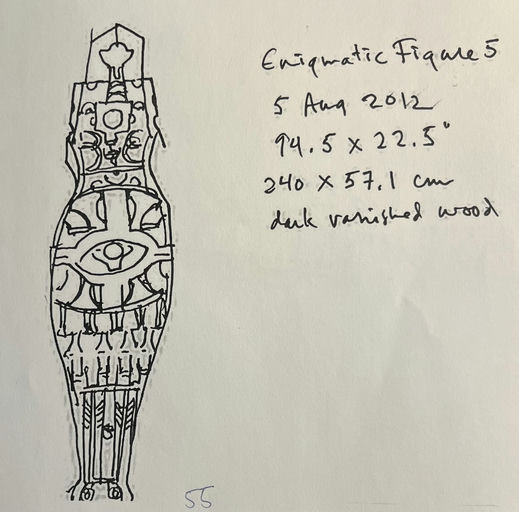 Enigmatic Figure 5
5 Aug 2012
94.5 x 22.5"
240 x 57.1 cm
dark vanished wood
55